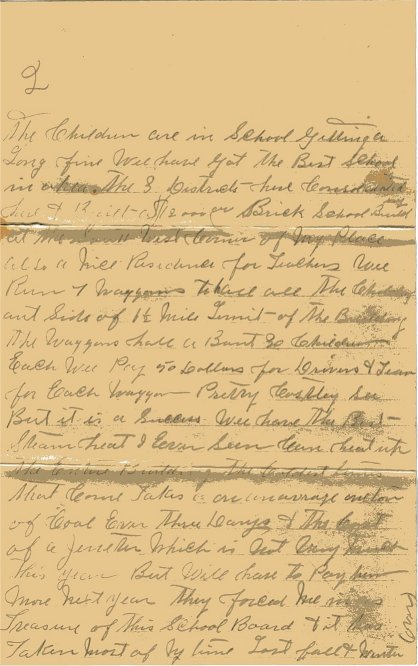 2
The Children are in School Gitting a
Long fine Wee have Got the Best School
in The 3 Districts have Consolidated
here & Built a $12000 00 Brick School
at the South West Corner of My Place
also a Nice Residence for Teachers Wee
Run 7 Waggons to all the Children
out Side of 1½ Mile Limit of the Building
The Waggons hall a Bout 30 Children
Each Wee Pay 50 Dollars for Drivers & Team
for Each Waggon Pretty Costley See
But it is a Success Wee have the Best
Steam heat I Ever Seen Can heat up
The Entire Building the Coldest
that Come Takes on an average a ton
of Coal Ever three Days & the Cost
of a Jenetter Which is Not Very Much
This year But Will have to Pay him
More Next year They forced Me
Treasure of this School Board & it has
Taken Most of My time Last fall & Winter